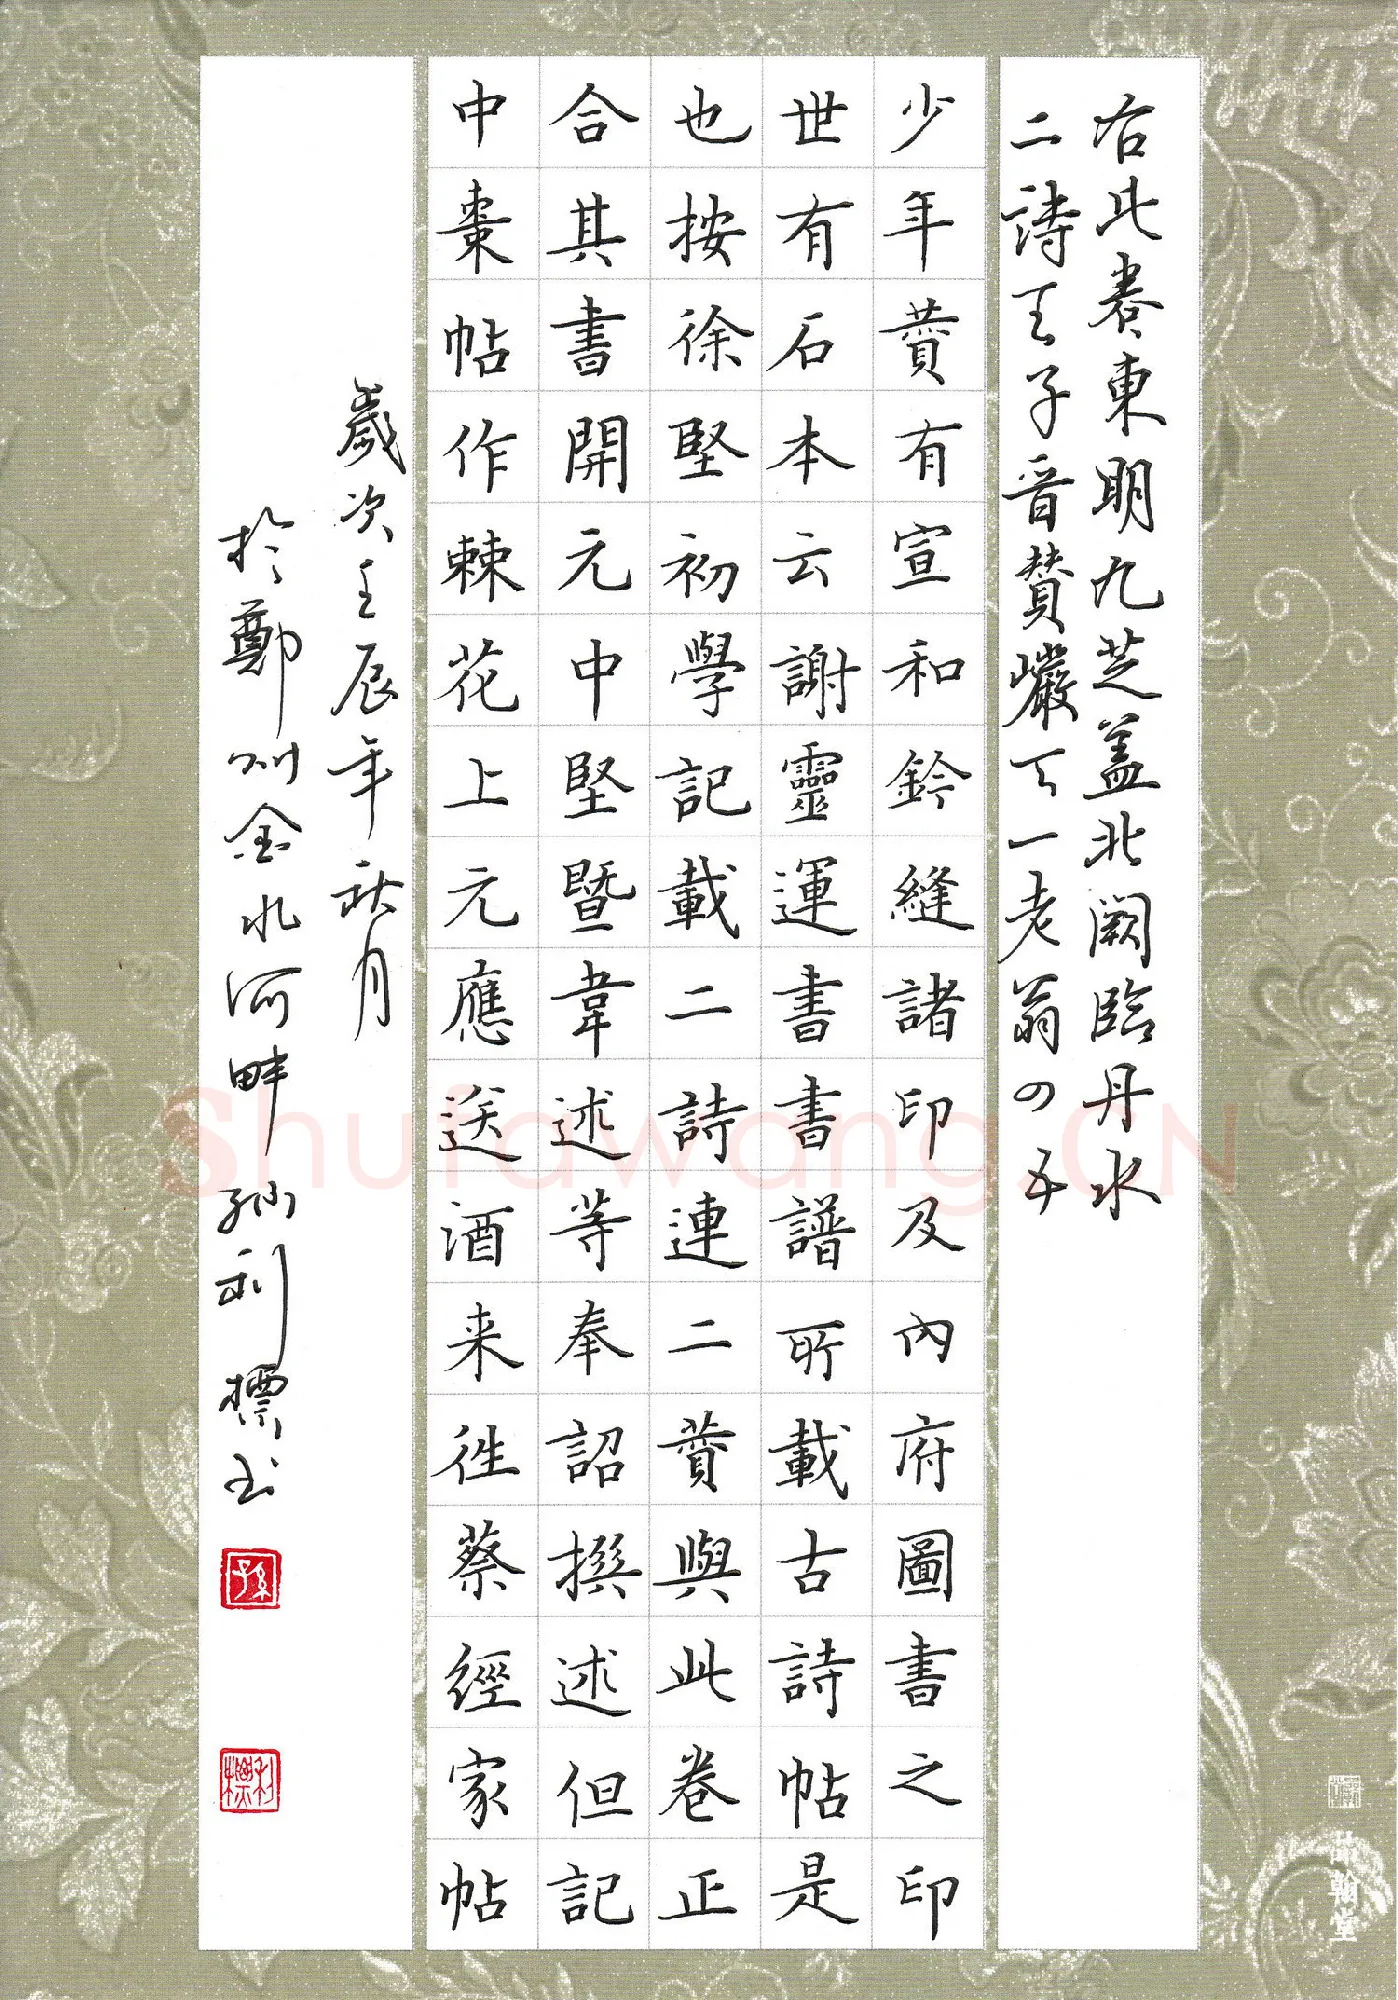 右此卷東明九芝蓋北闕臨丹水
二詩王子晋賛巖下一老翁四五
少年蕒有宣和鈐縫諸印及內府圖書之印
世有石本云謝靈運書書譜所載古詩帖是
也按徐堅初學記載二詩連二蕒與此卷正
合其書開元中堅暨韋述等奉詔撰述但記
中棗帖作棘花上元應送酒来徃蔡經家帖
歲次壬辰年秋月
於鄭州金水河畔孫利標书
孫
利標
Shufawang.CN
翰堂